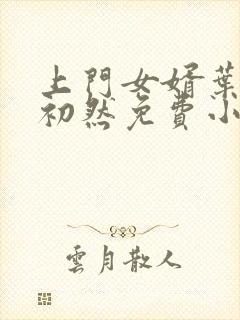 上門女婿葉
初然免費小
雲月散人